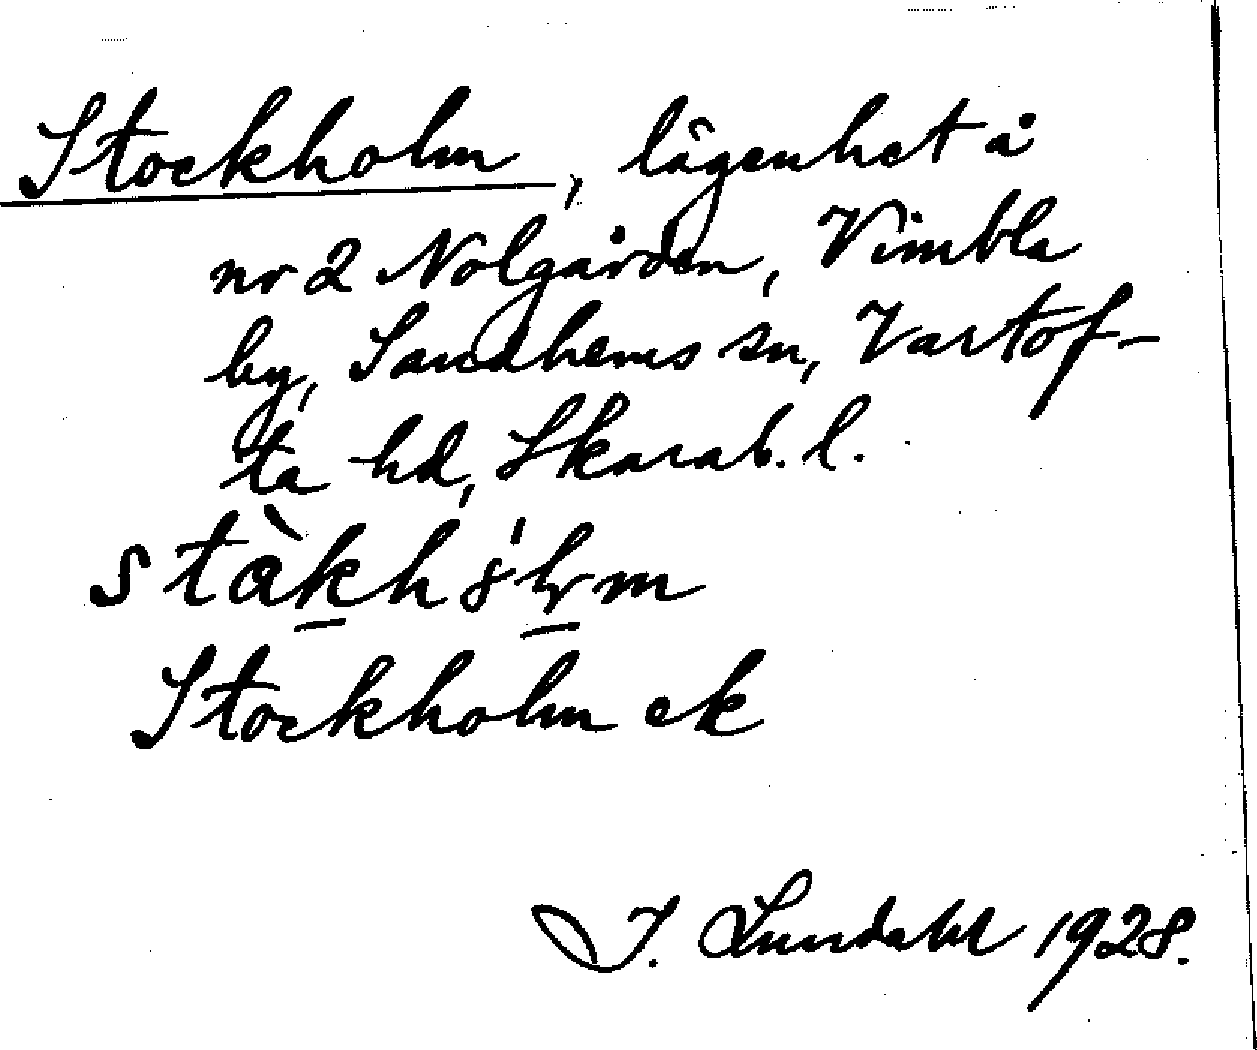 Stockholm, lägenhet å
nr 2 Nolgården, Vimbla
by, Sandhems sn, Vartof-
ta hd, Skarab. l.
Stockholm ek
I. Lundahl 1928.